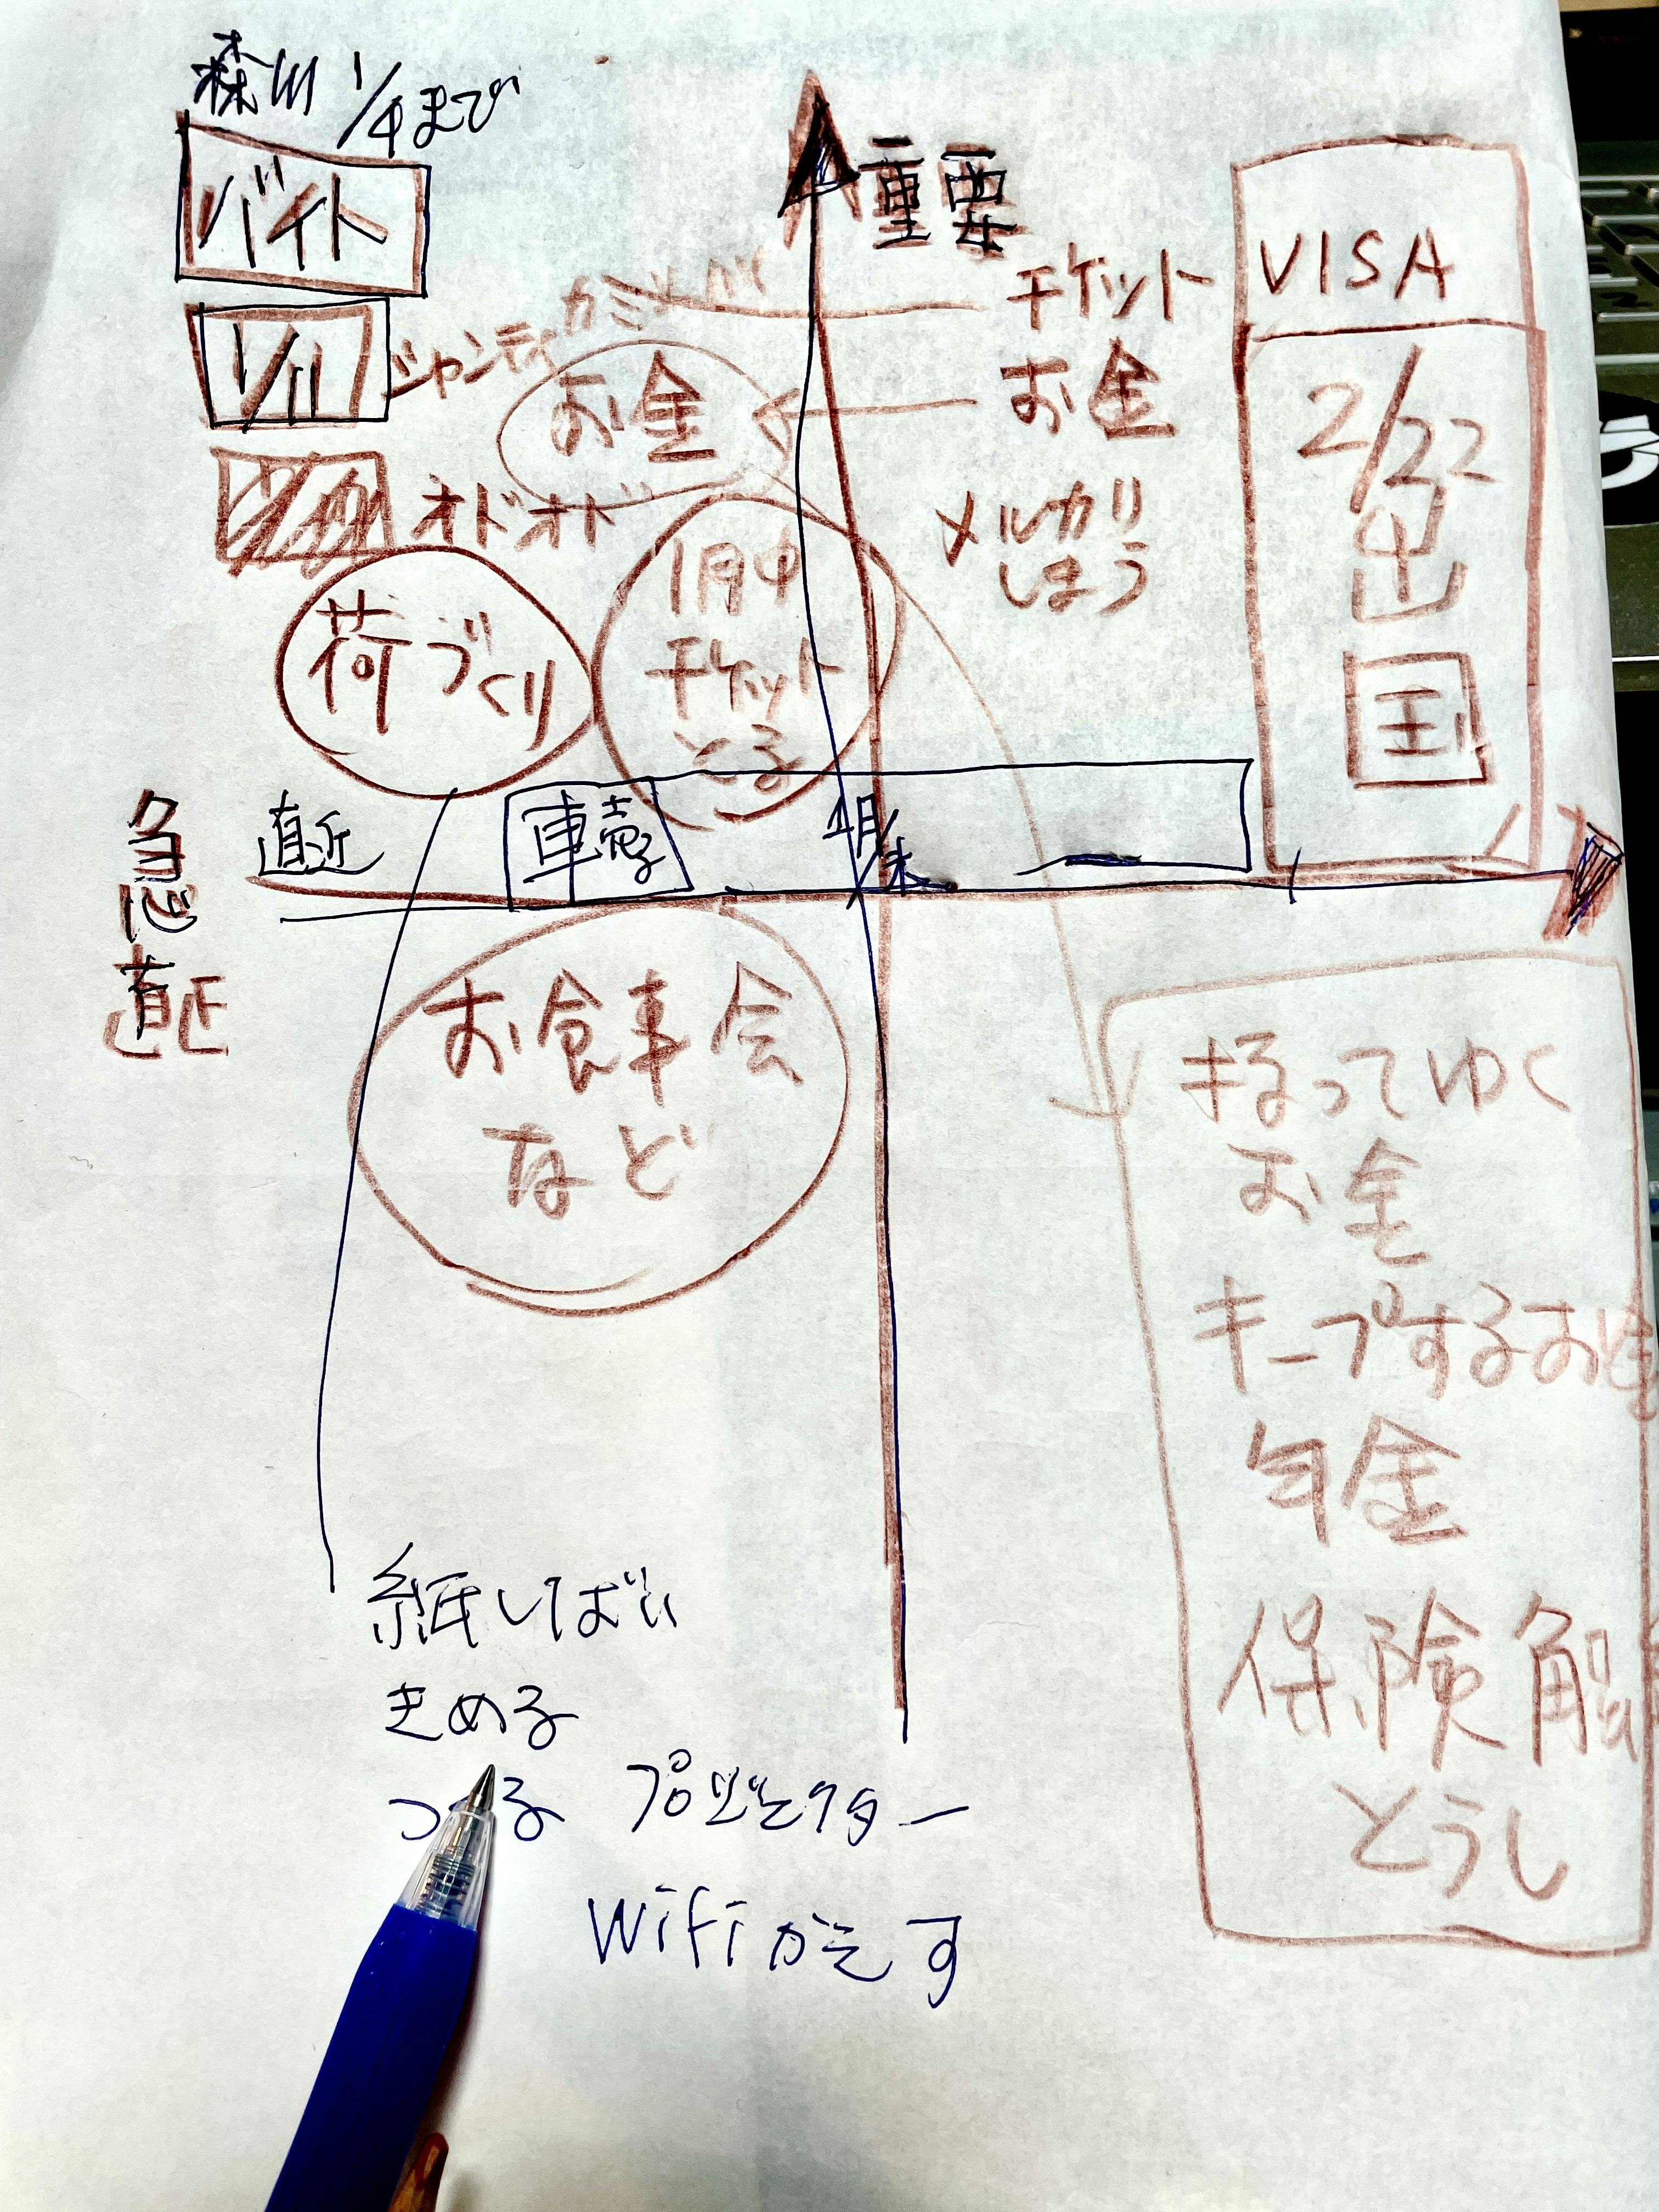 森川 1/4まで
バイト
1/11 シャンティ
オドオド
重要
チケット
お金
お金
メルカリ
しまう
VISA
2/22
出
国
荷づくり
1月中
チケット
とる
急
直近
直近
車売る
1月末
お食事会
など
まるってゆく
お金
キープするお金
年金
保険解
とうし
紙しばい
きめる
プロジェクター
Wifiかえす